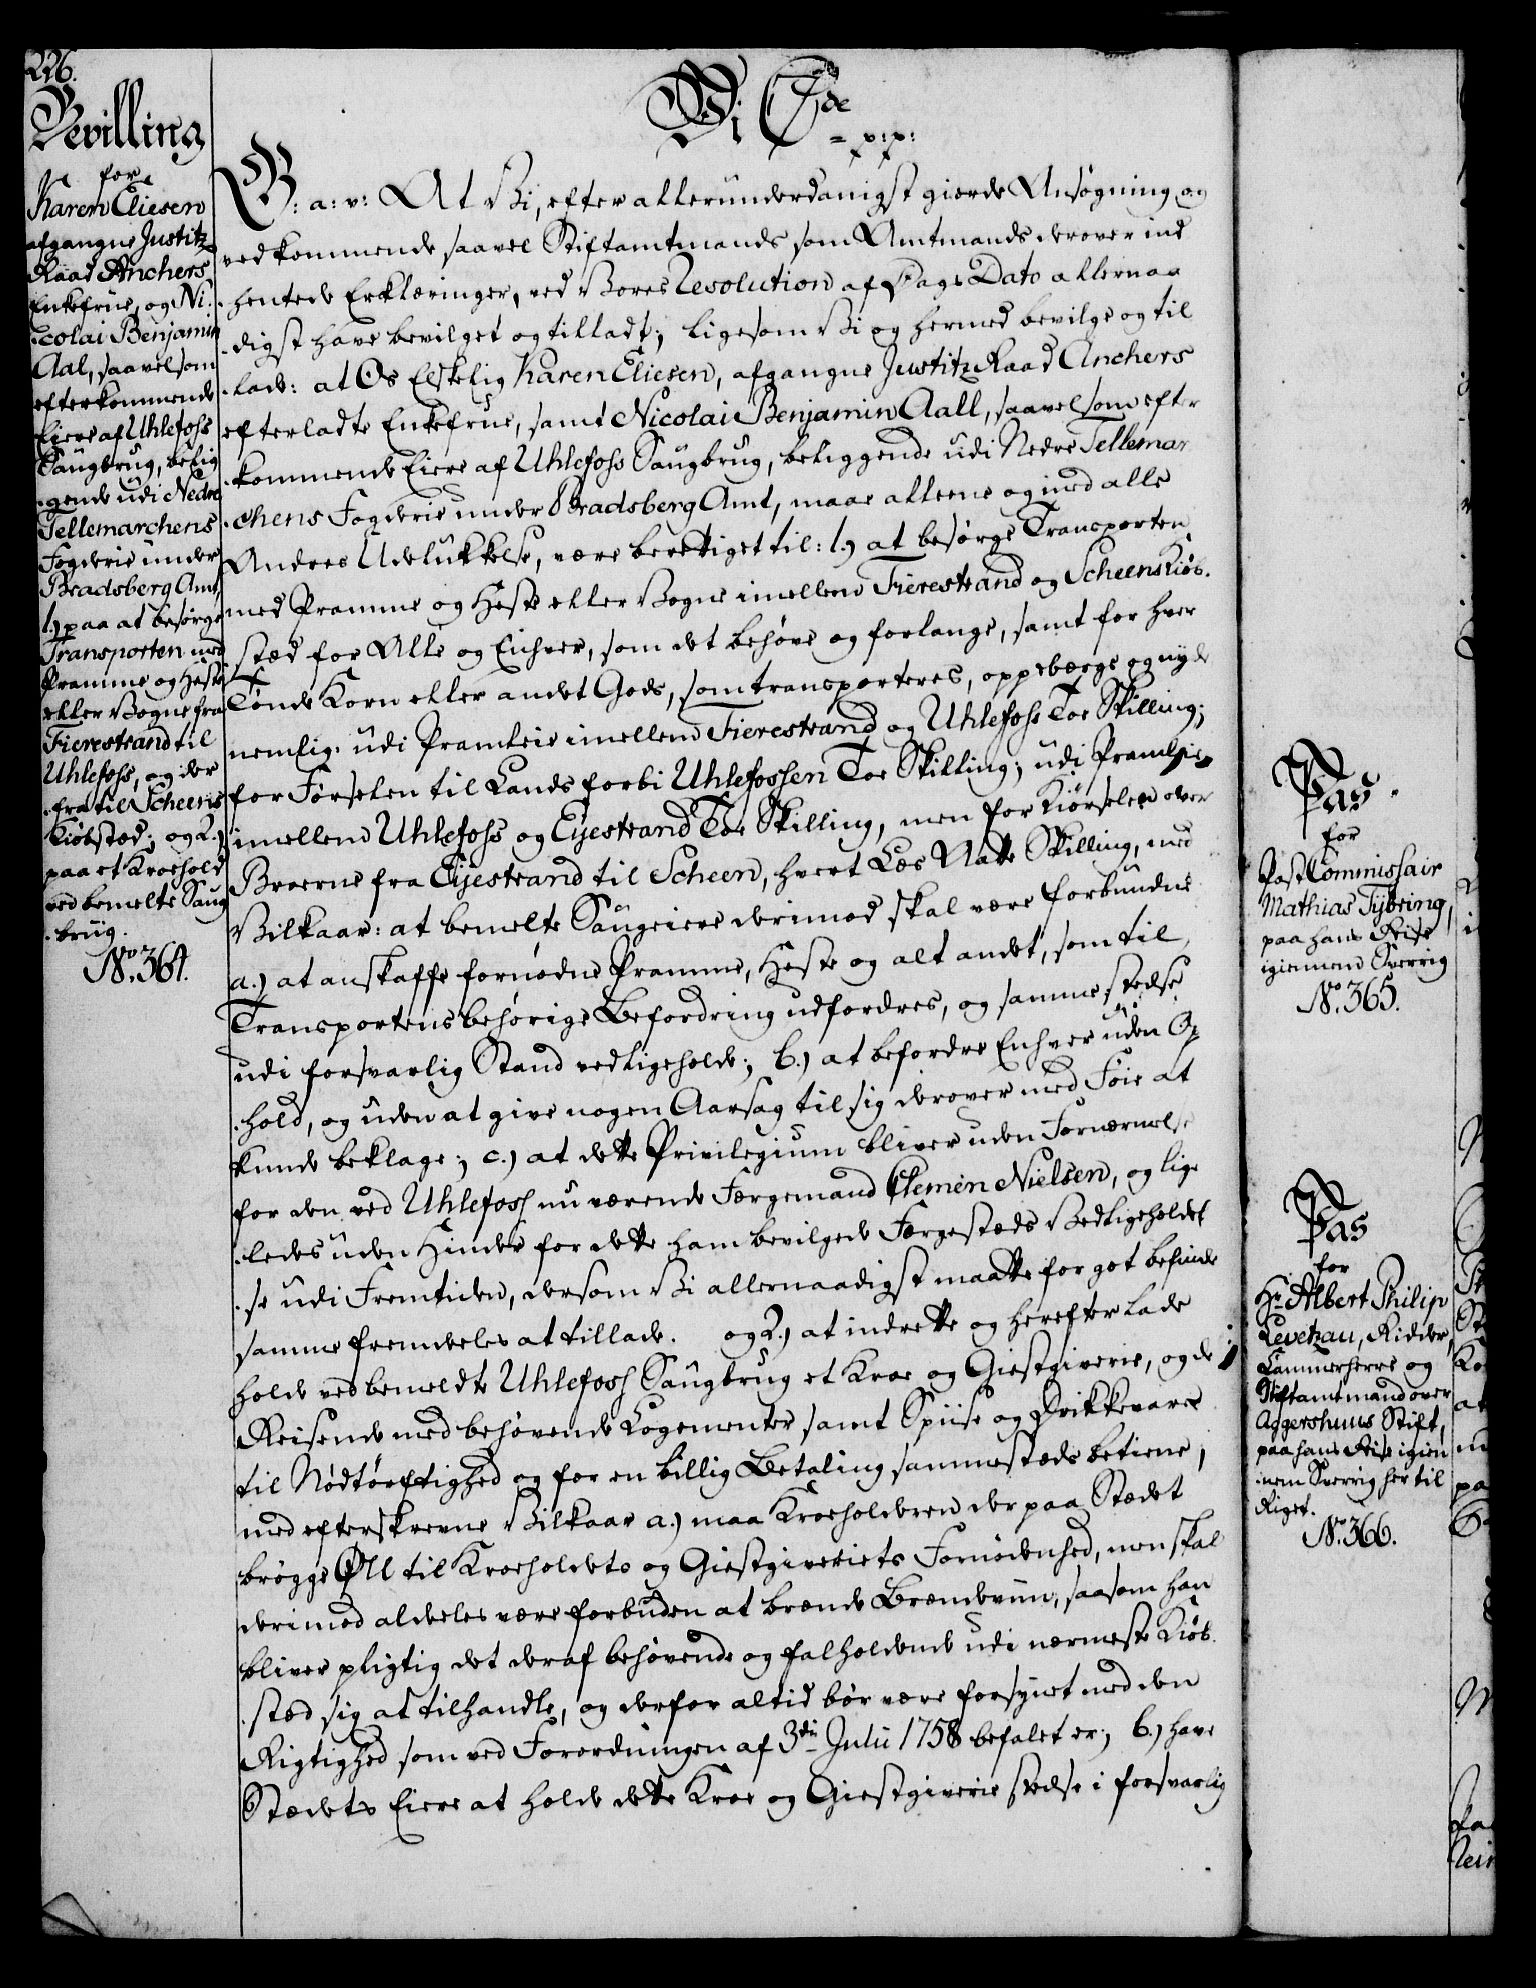 226.
Bevilling
for
Karen Eliesen
afgangne Justitz
Raad Anchers
Enkefrue, og Ni-
colai Benjamin
Aal, saavelsom
efterkommende
Eiere af Uhlefoss
Saugbrug, belig
gende udi Nedre
Tellemarchens
Fogderie under
Bradsberg Amt,
1.) paa at besørge
Transporten med
Pramme og Heste
eller Vogne fra
Fierestrand til
Uhlefoss, og der
fra til Scheens
Kiøbstæd; og 2.)
paa et Kroehold
ved bemelte Saug
brug.
No. 364.
Vi C 7de
= p: p:
G: a: v: At Vi, efter allerunderdanigst giorde Ansøgning og
vedkommende saavel Stiftamtmands som Amtmands derover ind
hentede Erklæringer, ved Vores Resolution af Dags Dato allernaa
digst have bevilget og tilladt; ligesom Vi og hermed bevilge og til
lade: at Os Elskelig Karen Eliesen, afgangne Justitz Raad Anchers
efterladte Enkefrue, samt Nicolai Benjamin Aall, saavelsom efter
kommende Eiere af Uhlefoss Saugbrug, beliggende udi Nedre Tellemar
chens Fogderie under Bradsberg Amt, maae alleene og med alle
Andres Udelukkelse, være berettiget til: 1.) at besørge Transporten
med Pramme og Heste eller Vogne imellem Fierestrand og Scheens Kiøb-
stæd for Alle og Enhver, som det behøve og forlange, samt for hver
Tønde Korn eller andet Gods, som transporteres, oppebærge og nyde
nemlig: udi Pramleie imellem Fierestrand og Uhlefoss Toe Skilling;
for Førselen til Lands forbi Uhlefossen Toe Skilling; udi Pramleie
imellem Uhlefoss og Eyestrand Toe Skilling, men for Kiørselen over
Broerne fra Eyestrand til Scheen, hvert Læs Aatte Skilling, med
Vilkaar: at bemelte Saugeiere derimod skal være forbundne
a.) at anskaffe fornødne Pramme, Heste og alt andet, som til
Transportens behørige Befordring udfordres, og samme stedse
udi forsvarlig Stand vedligeholde; b.) at befordre Enhver uden Op
hold, og uden at give nogen Aarsag til sig derover med Føie at
kunde beklage; c.) at dette Privilegium bliver uden Fornærmelse
for den ved Uhlefoss nu værende Færgemand Clemen Nielsen, og lige
ledes uden Hinder for dette ham bevilgede Færgestæds Vedligeholdel
se udi Fremtiden, dersom Vi allernaadigst maatte for got befinde
samme fremdeles at tillade. og 2.) at indrette og herefter lade
holde ved bemeldte Uhlefoss Saugbrug et Kroe og Giestgiverie, og de
Reisende med behøvende Logementer samt Spiise og Drikkevarer
til Nødtørftighed og for en billig Betaling sammestæds betiene;
med efterskrevne Vilkaar a.) maa Kroeholderen der paa Stædet
brøgge Øll til Kroeholdets og Giestgiveriets Fornødenhed, men skal
derimod aldeles være forbuden at brænde Brændeviin, saasom han
bliver pligtig det deraf behøvende og falholdende udi nærmeste Kiøb-
stæd sig at tilhandle, og derfor altid bør være forsynet med den
Rigtighed som ved Forordningen af 3die Julii 1758 befalet er; b.) have
Stædets Eiere at holde dette Kroe og Giestgiverie stedse i forsvarlig
Pas
for
Post Commissair
Mathias Tybring,
paa hans Reise
igiennem Sverrig
No. 365.
Pas
for
Hr. Albert Philip
Levetzau, Ridder,
Cammerherre og
Stiftamtmand over
Aggershuus Stift,
paa hans Reise igien
nem Sverrig her til
Riget.
No. 366.